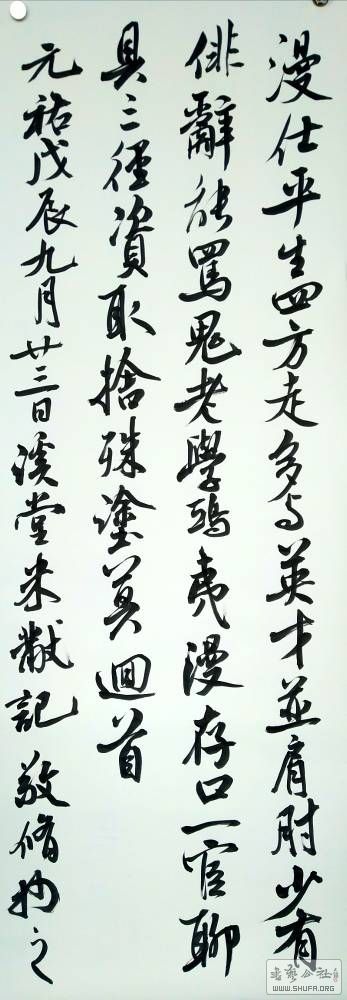 漫仕平生四方走多与英才並肩肘少有
俳辭能罵鬼老學鴟夷漫存口一官聊
具三徑資取捨殊塗莫迴首
元祐戊辰九月廿三日溪堂米黻記 敬脩抄之
書法公社
WWW.SHUFA.ORG